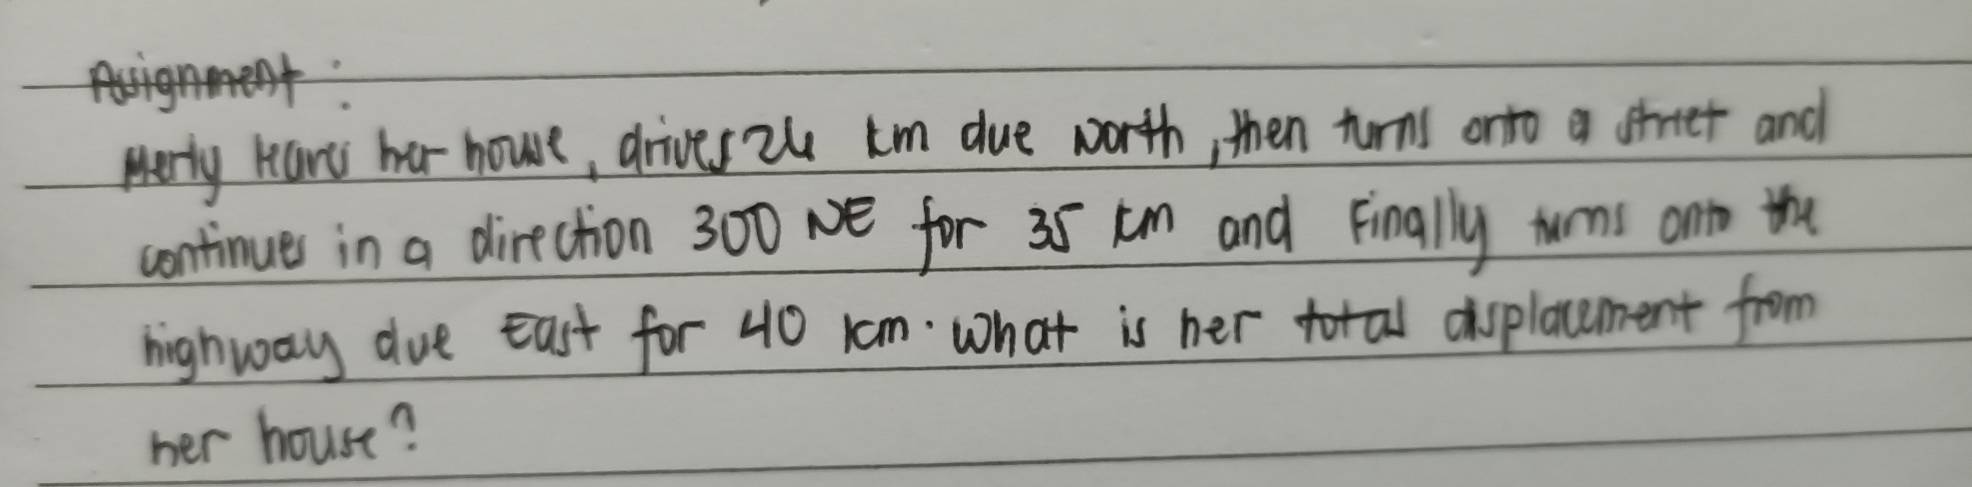 Assignment:
Merly leaves her house, drives 24 km due north, then turns onto a street and
continues in a direction 300 NE for 35 km and Finally turns onto the
highway due East for 40 km. What is her total displacement from
her house?